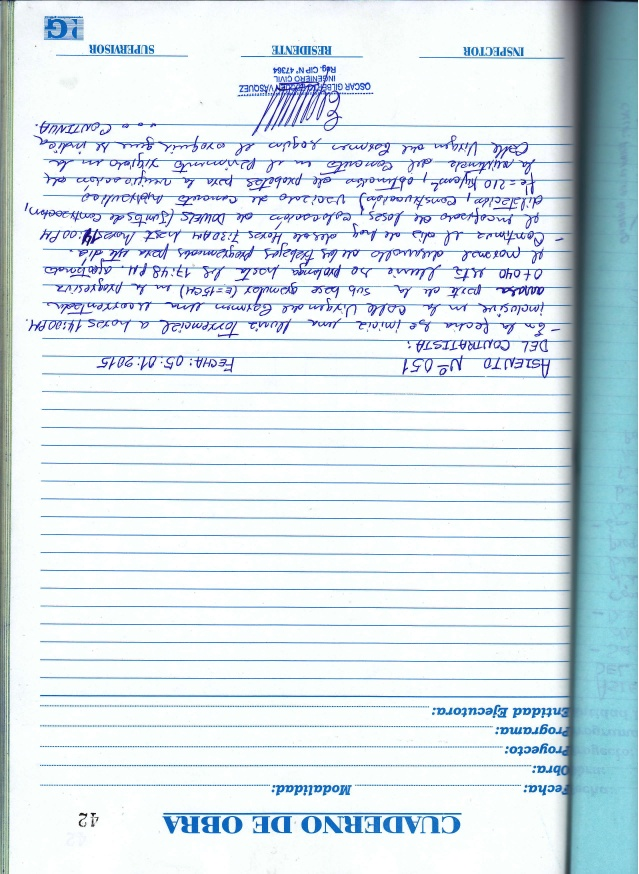 CUADERNO DE OBRA
42
Fecha: Modalidad:
Obra:
Proyecto:
Programa:
Entidad Ejecutora:
ASIENTO Nº 051 FECHA: 05.01.2015
DEL CONTRATISTA:
- En la fecha se inicia una lluvia torrencial a horas 14:00 PM.
inclusive en la calle Virgen del Carmen una
parte de la sub base granular (E=15CM) en la progresiva
0+040 esta lluvia se prolonga hasta las 17:48 PM.
el normal desarrollo de los trabajos programados para este día.
- Continua el día de hoy desde Horas 7:30 AM hast horas 14:00 PM
el encofrado de losas, colocación de DOWELS (Juntas de contracción,
dilatación, construcción) vaciado de concreto hidráulico
F'c = 210 kg/cm², obtención de probetas para la verificación de
la resistencia del Concreto en el pavimento rígido en la
Calle Virgen del Carmen según el croquis que se indica,
.... CONTINUA.
OSCAR VASQUEZ
INGENIERO CIVIL
Reg. CIP N° 47364
INSPECTOR RESIDENTE SUPERVISOR